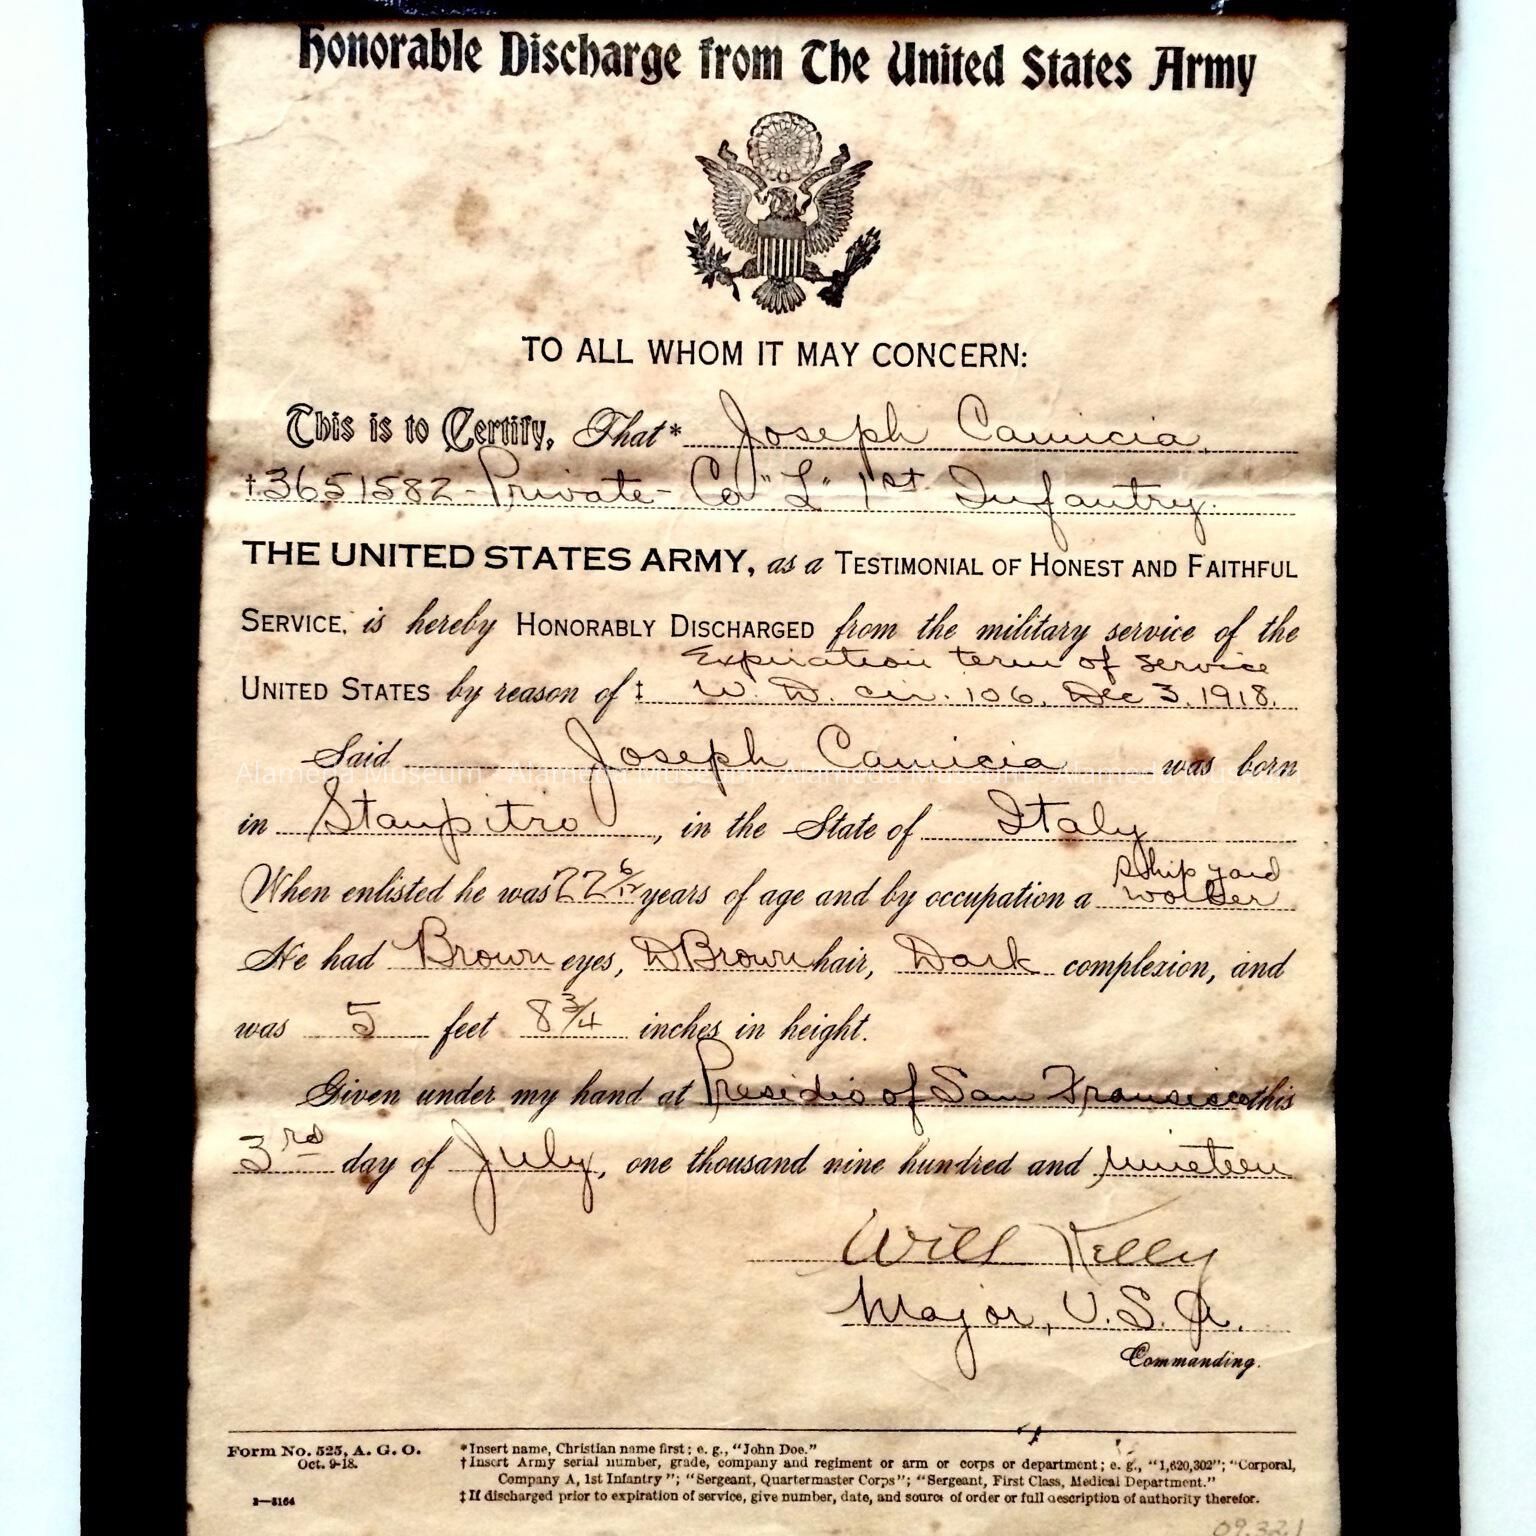 Honorable Discharge from The United States Army
TO ALL WHOM IT MAY CONCERN:
This is to Certify, That* Joseph Camicia,
†3651582-Private- Co "L" 1st Infantry.
THE UNITED STATES ARMY, as a TESTIMONIAL OF HONEST AND FAITHFUL
SERVICE, is hereby HONORABLY DISCHARGED from the military service of the
Expiration term of service
UNITED STATES by reason of ‡ W. D. cir. 106. Dec 3. 1918.
Said Joseph Camicia was born
Alameda Museum - Alameda Museum - Alameda Museum - Alameda Museum
in Stanpitro, in the State of Italy
When enlisted he was 22 6/12 years of age and by occupation a Ship yard
worker
He had Brown eyes, D Brown hair, Dark complexion, and
was 5 feet 8 3/4 inches in height.
Given under my hand at Presidio of San Francisco this
3rd day of July, one thousand nine hundred and nineteen
Will Kelly
Major, U.S.A.
Commanding.
Form No. 525, A. G. O.
Oct. 9-18.
3—3164
*Insert name, Christian name first; e. g., "John Doe."
†Insert Army serial number, grade, company and regiment or arm or corps or department; e. g., "1,620,302"; "Corporal,
Company A, 1st Infantry"; "Sergeant, Quartermaster Corps"; "Sergeant, First Class, Medical Department."
‡If discharged prior to expiration of service, give number, date, and source of order or full description of authority therefor.
09.32.1